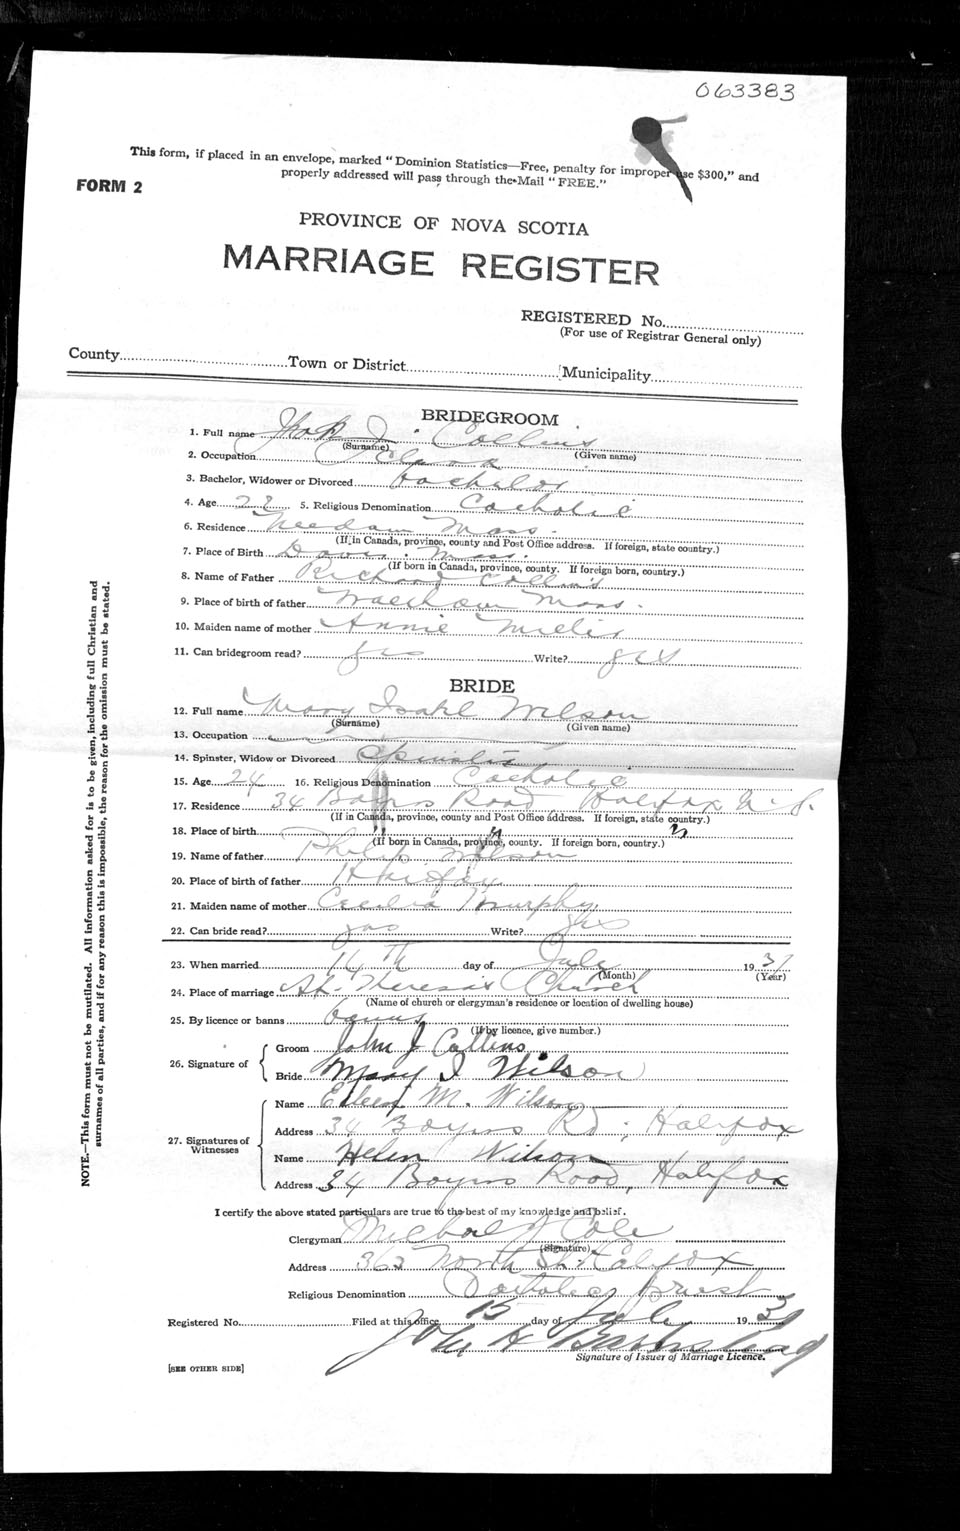 063383
This form, if placed in an envelope, marked "Dominion Statistics—Free, penalty for improper use $300," and
properly addressed will pass through the Mail "FREE."
FORM 2
PROVINCE OF NOVA SCOTIA
MARRIAGE REGISTER
REGISTERED No.
(For use of Registrar General only)
County Town or District Municipality
BRIDEGROOM
1. Full name John J. Collins
(Surname) (Given name)
2. Occupation
3. Bachelor, Widower or Divorced bachelor
4. Age 5. Religious Denomination Catholic
6. Residence Needam Mass.
(If in Canada, province, county and Post Office address. If foreign, state country.)
7. Place of Birth Mass.
(If born in Canada, province, county. If foreign born, country.)
8. Name of Father Richard Collins
9. Place of birth of father Waltham Mass.
10. Maiden name of mother Annie
11. Can bridegroom read? yes Write? yes
BRIDE
12. Full name Mary Isabel Wilson
(Surname) (Given name)
13. Occupation
14. Spinster, Widow or Divorced Spinster
15. Age 24 16. Religious Denomination Catholic
17. Residence 34 Road Halifax N.S.
(If in Canada, province, county and Post Office address. If foreign, state country.)
18. Place of birth " " "
(If born in Canada, province, county. If foreign born, country.)
19. Name of father Philip Wilson
20. Place of birth of father Halifax
21. Maiden name of mother Cecilia Murphy
22. Can bride read? yes Write? yes
23. When married 16th day of July 1937
(Month) (Year)
24. Place of marriage St. Theresa's Church
(Name of church or clergyman's residence or location of dwelling house)
25. By licence or banns banns
(If by licence, give number.)
26. Signature of
Groom John J Collins
Bride Mary I Wilson
27. Signatures of Witnesses
Name Eileen M. Wilson
Address 34 Rd., Halifax
Name Helen Wilson
Address 34 Road, Halifax
I certify the above stated particulars are true to the best of my knowledge and belief.
Clergyman Michael J Cole
(Signature)
Address 363 North St. Halifax
Religious Denomination Catholic priest
Registered No. Filed at this office 15 day of July 193
John
Signature of Issuer of Marriage Licence.
[SEE OTHER SIDE]
NOTE.—This form must not be mutilated. All information asked for is to be given, including full Christian and
surnames of all parties, and if for any reason this is impossible, the reason for the omission must be stated.